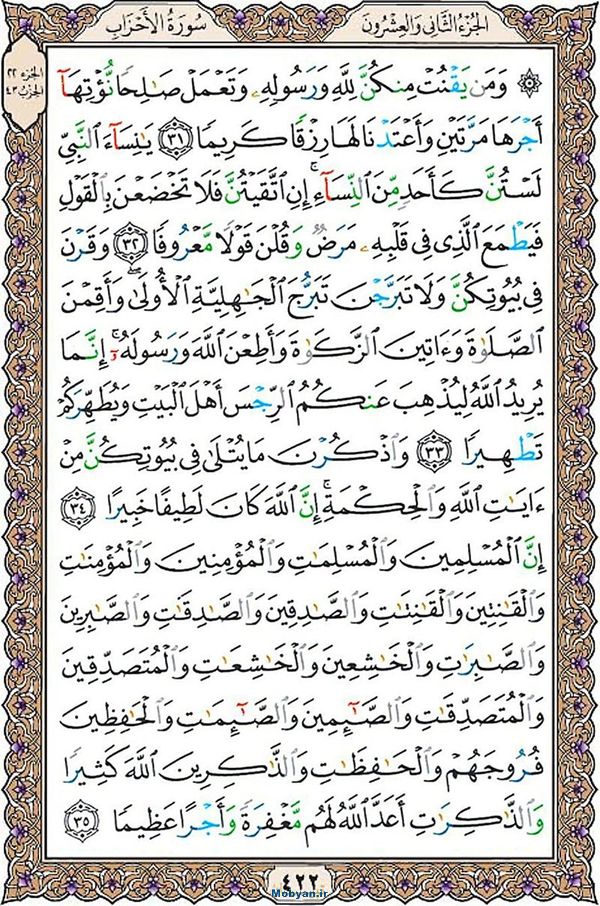 سُورَةُ الأَحْزَابِ
الجُزْءُ الثَّانِي وَالعِشْرُونَ
الجُزء ٢٢
الحِزْب ٤٣
۞ وَمَن يَقْنُتْ مِنكُنَّ لِلَّهِ وَرَسُولِهِۦ وَتَعْمَلْ صَٰلِحًا نُّؤْتِهَآ
أَجْرَهَا مَرَّتَيْنِ وَأَعْتَدْنَا لَهَا رِزْقًا كَرِيمًا ٣١ يَٰنِسَآءَ ٱلنَّبِيِّ
لَسْتُنَّ كَأَحَدٍ مِّنَ ٱلنِّسَآءِ ۚ إِنِ ٱتَّقَيْتُنَّ فَلَا تَخْضَعْنَ بِٱلْقَوْلِ
فَيَطْمَعَ ٱلَّذِى فِى قَلْبِهِۦ مَرَضٌ وَقُلْنَ قَوْلًا مَّعْرُوفًا ٣٢ وَقَرْنَ
فِى بُيُوتِكُنَّ وَلَا تَبَرَّجْنَ تَبَرُّجَ ٱلْجَٰهِلِيَّةِ ٱلْأُولَىٰ ۖ وَأَقِمْنَ
ٱلصَّلَوٰةَ وَءَاتِينَ ٱلزَّكَوٰةَ وَأَطِعْنَ ٱللَّهَ وَرَسُولَهُۥٓ ۚ إِنَّمَا
يُرِيدُ ٱللَّهُ لِيُذْهِبَ عَنكُمُ ٱلرِّجْسَ أَهْلَ ٱلْبَيْتِ وَيُطَهِّرَكُمْ
تَطْهِيرًا ٣٣ وَٱذْكُرْنَ مَا يُتْلَىٰ فِى بُيُوتِكُنَّ مِنْ
ءَايَٰتِ ٱللَّهِ وَٱلْحِكْمَةِ ۚ إِنَّ ٱللَّهَ كَانَ لَطِيفًا خَبِيرًا ٣٤
إِنَّ ٱلْمُسْلِمِينَ وَٱلْمُسْلِمَٰتِ وَٱلْمُؤْمِنِينَ وَٱلْمُؤْمِنَٰتِ
وَٱلْقَٰنِتِينَ وَٱلْقَٰنِتَٰتِ وَٱلصَّٰدِقِينَ وَٱلصَّٰدِقَٰتِ وَٱلصَّٰبِرِينَ
وَٱلصَّٰبِرَٰتِ وَٱلْخَٰشِعِينَ وَٱلْخَٰشِعَٰتِ وَٱلْمُتَصَدِّقِينَ
وَٱلْمُتَصَدِّقَٰتِ وَٱلصَّٰٓئِمِينَ وَٱلصَّٰٓئِمَٰتِ وَٱلْحَٰفِظِينَ
فُرُوجَهُمْ وَٱلْحَٰفِظَٰتِ وَٱلذَّٰكِرِينَ ٱللَّهَ كَثِيرًا
وَٱلذَّٰكِرَٰتِ أَعَدَّ ٱللَّهُ لَهُم مَّغْفِرَةً وَأَجْرًا عَظِيمًا ٣٥
٤٢٢
Mobyan.ir